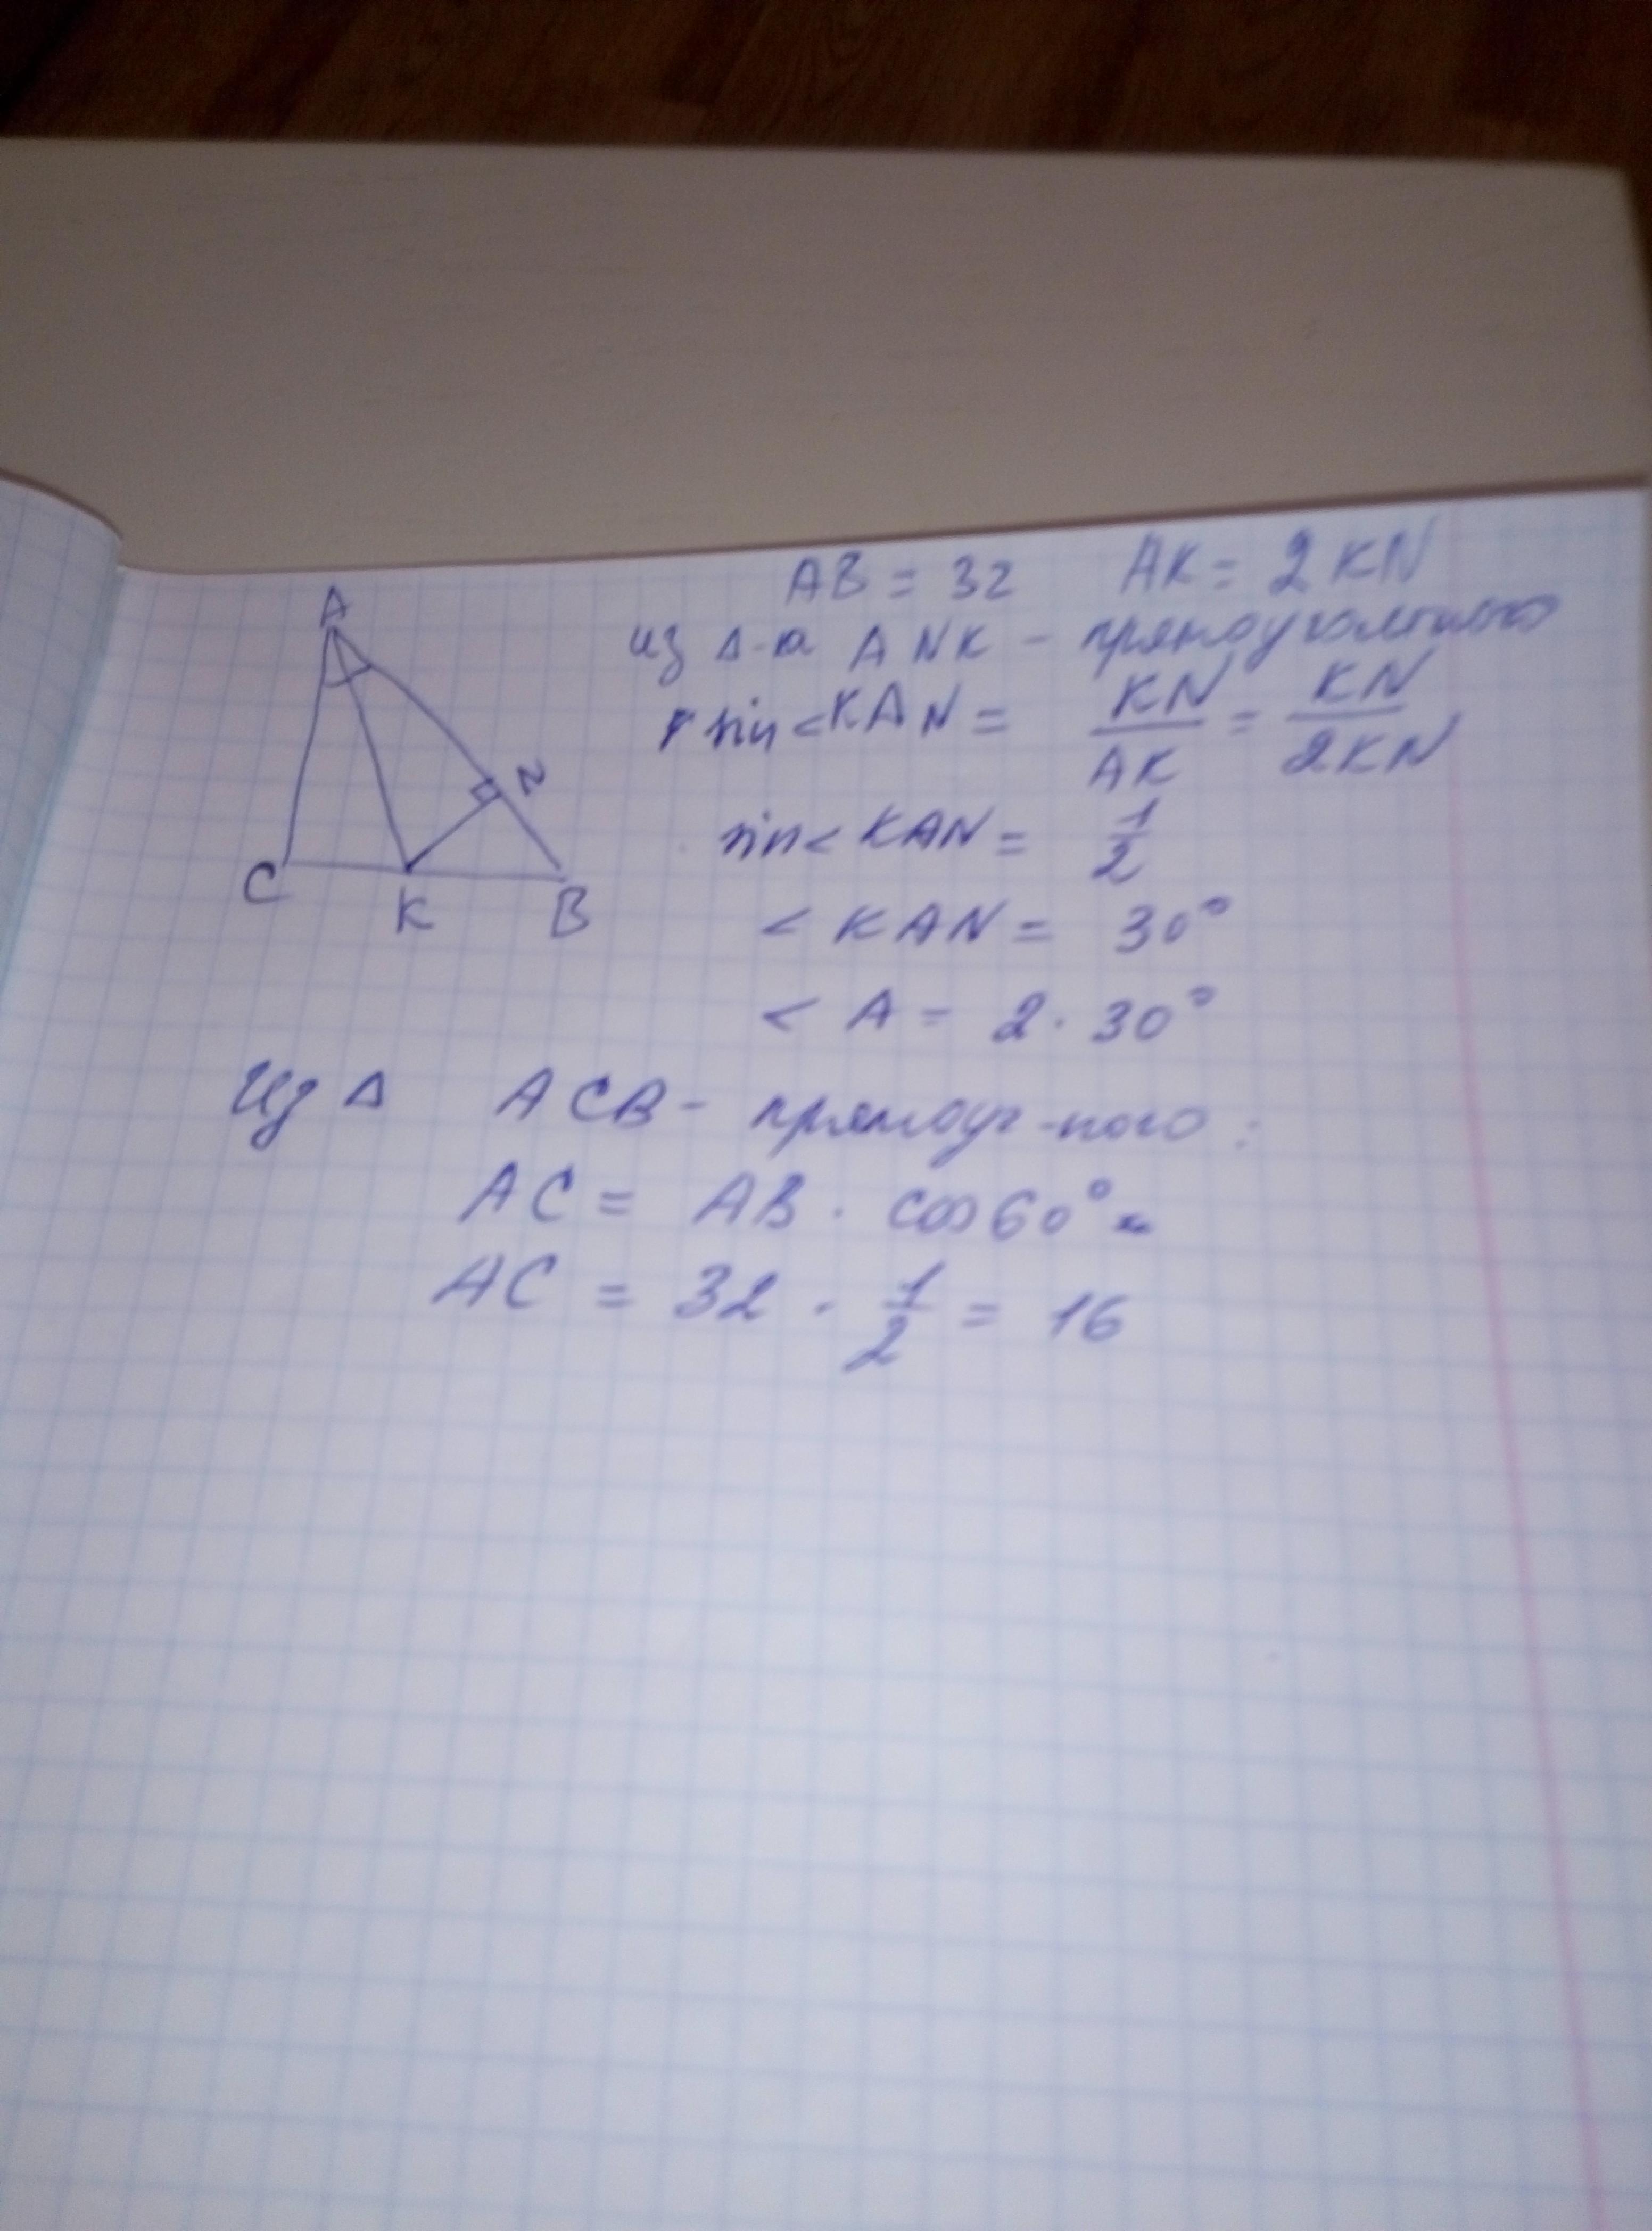 AB = 32 AK = 2KN
A
из Δ-ка ANK - прямоугольного
sin<KAN = KN/AK = KN/2KN
N
sin<KAN = 1/2
C K B
<KAN = 30°
<A = 2·30°
Из Δ ACB - прямоуг-ного:
AC = AB · cos60° =
AC = 32 · 1/2 = 16